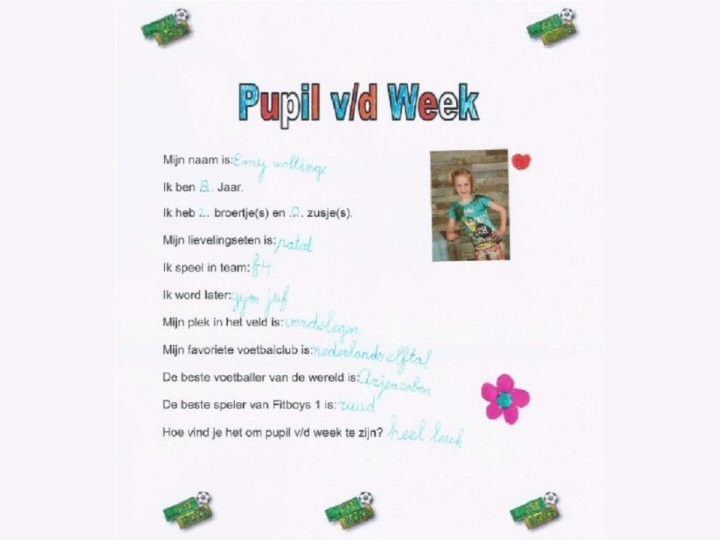 Pupil v/d Week
Mijn naam is: Emy woltinge
Ik ben 8. Jaar.
Ik heb 1.. broertje(s) en .0. zusje(s).
Mijn lievelingseten is: patat
Ik speel in team: f4
Ik word later: gym juf
Mijn plek in het veld is: verdelegen
Mijn favoriete voetbalclub is: nederlands elftal
De beste voetballer van de wereld is: Arjenroben
De beste speler van Fitboys 1 is: ruud
Hoe vind je het om pupil v/d week te zijn? heel leuk